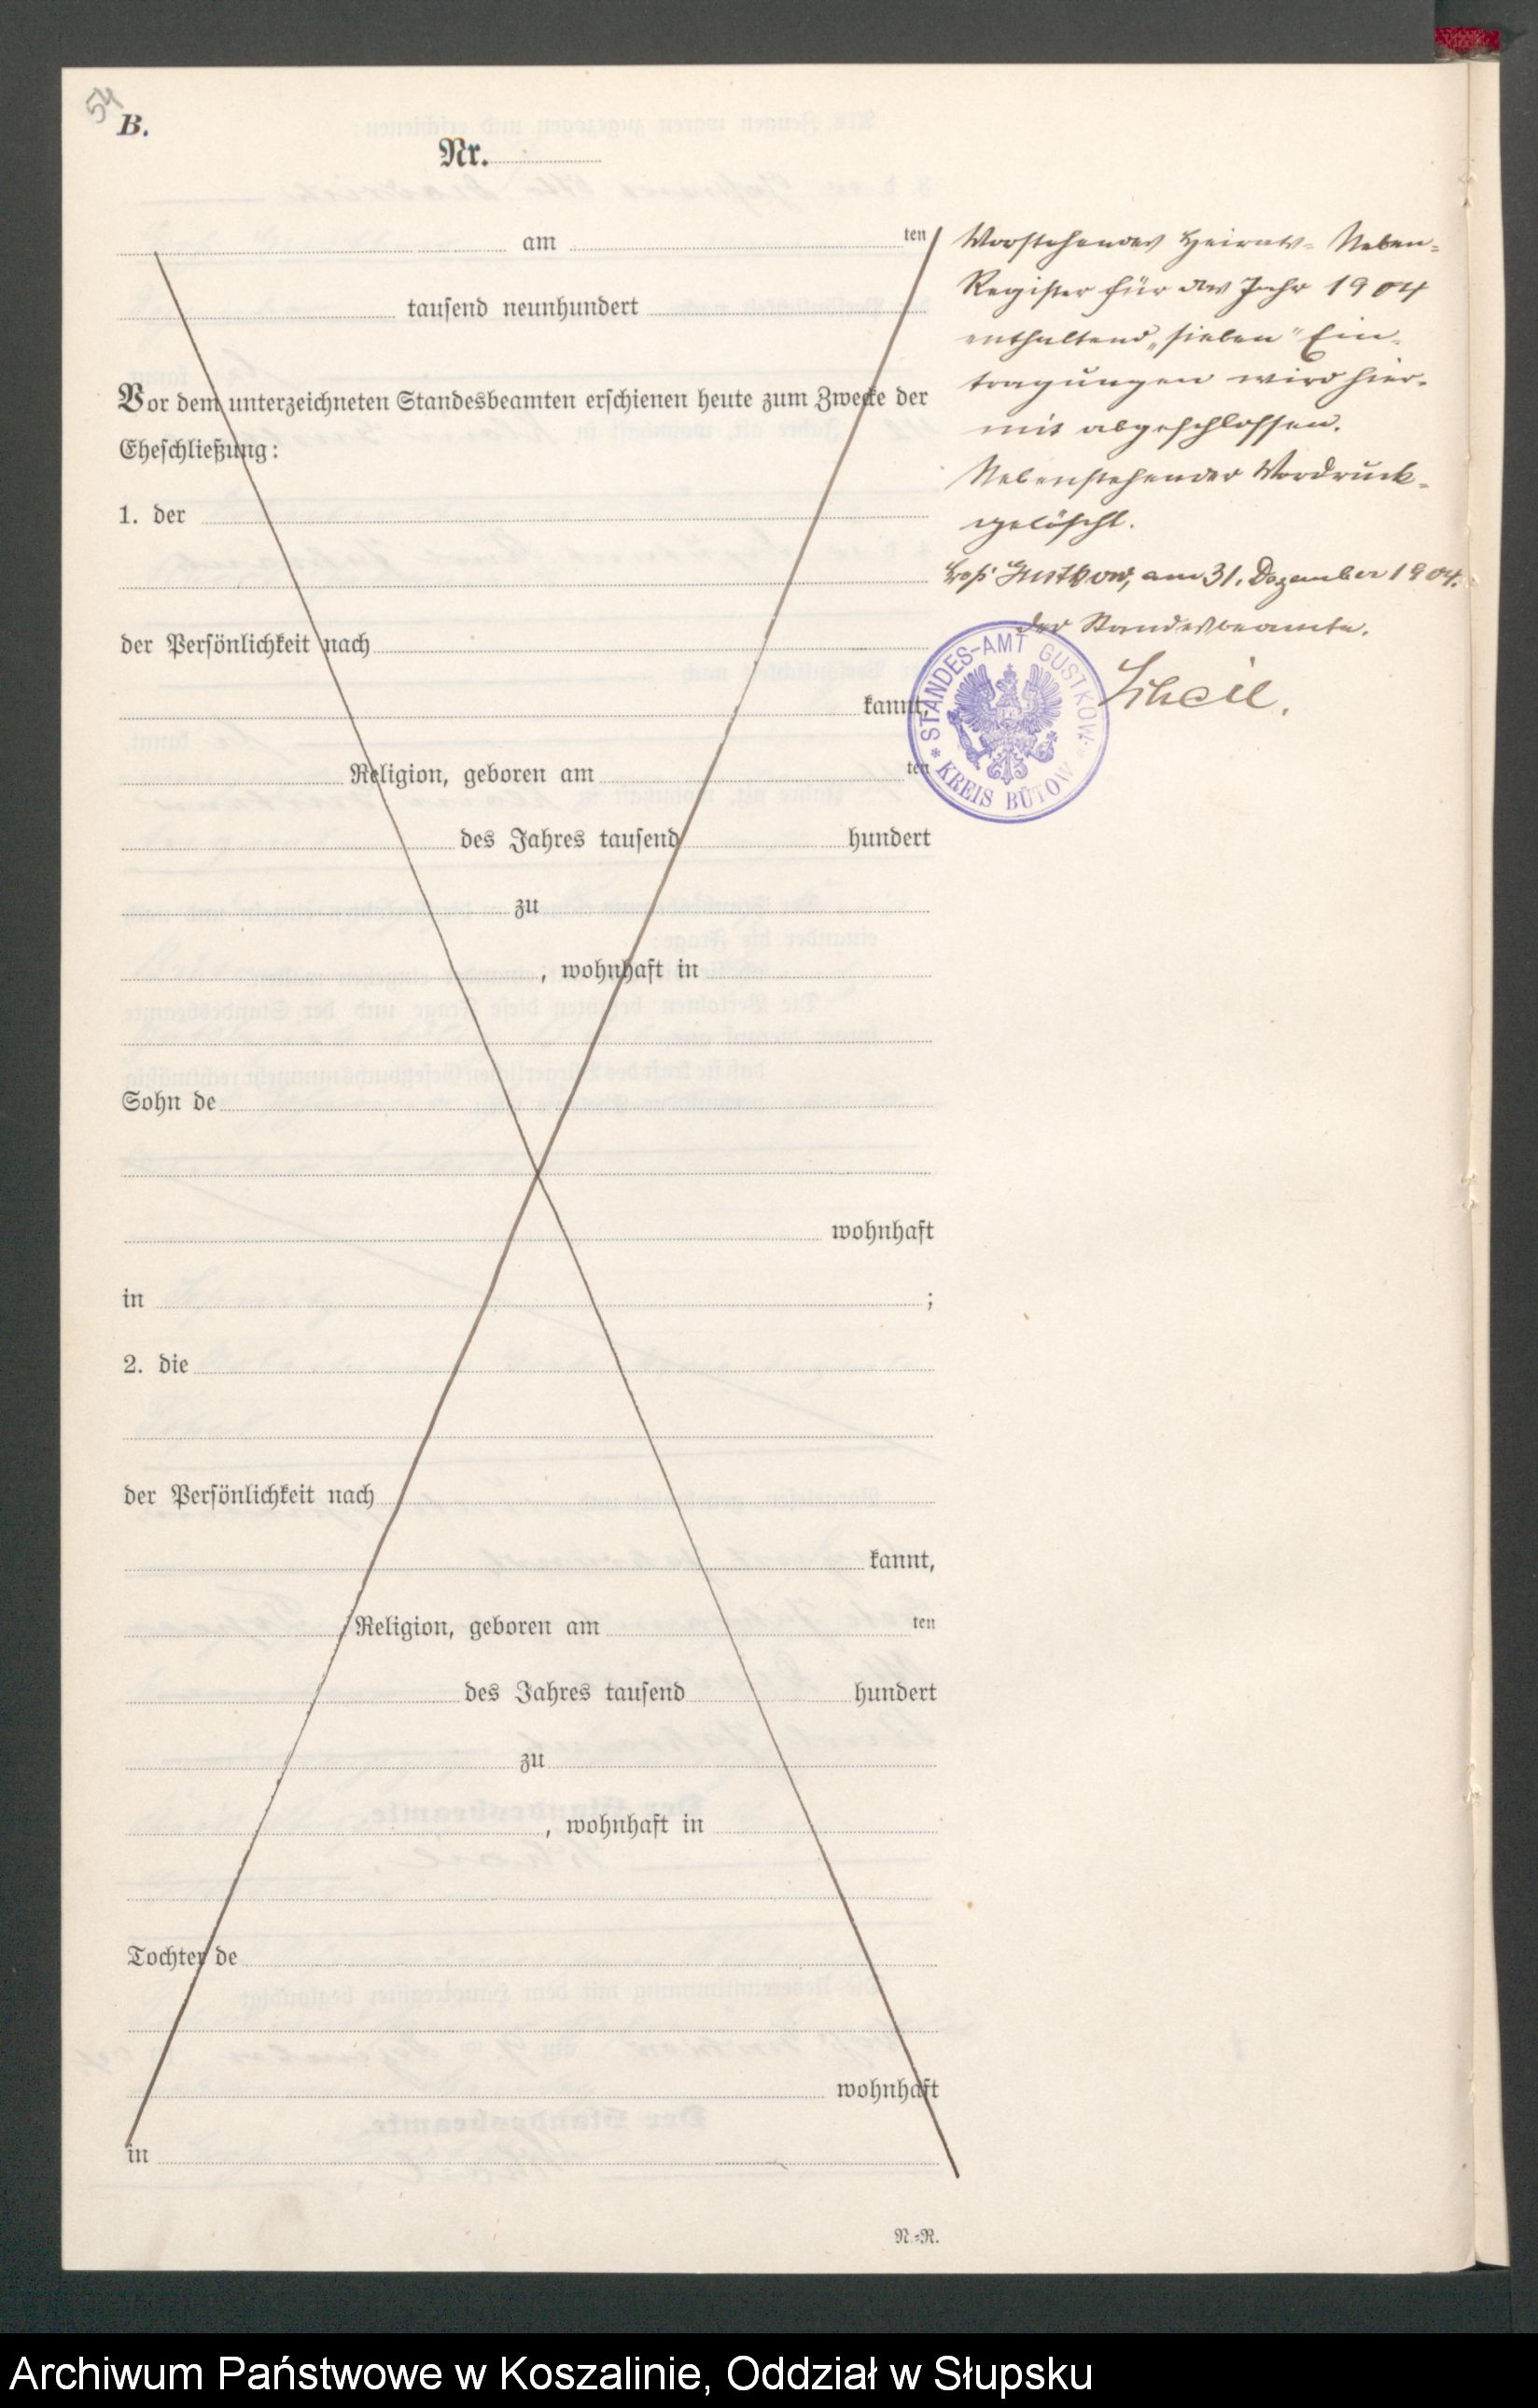 54
B.
Nr.
am ten
tausend neunhundert
Vor dem unterzeichneten Standesbeamten erschienen heute zum Zwecke der
Eheschließung:
1. der
der Persönlichkeit nach
kannt,
Religion, geboren am ten
des Jahres tausend hundert
zu
, wohnhaft in
Sohn de
wohnhaft
in ;
2. die
der Persönlichkeit nach
kannt,
Religion, geboren am ten
des Jahres tausend hundert
zu
, wohnhaft in
Tochter de
wohnhaft
in
N.=R.
Vorstehendes Heirats- Neben-
Register für das Jahr 1904
enthaltend „sieben" Ein-
tragungen wird hier-
mit abgeschlossen.
Nebenstehender Vordruck
gelöscht.
Groß Gustkow, am 31. Dezember 1904.
Der Standesbeamte.
STANDES-AMT GUSTKOW
* KREIS BÜTOW *
Archiwum Państwowe w Koszalinie, Oddział w Słupsku